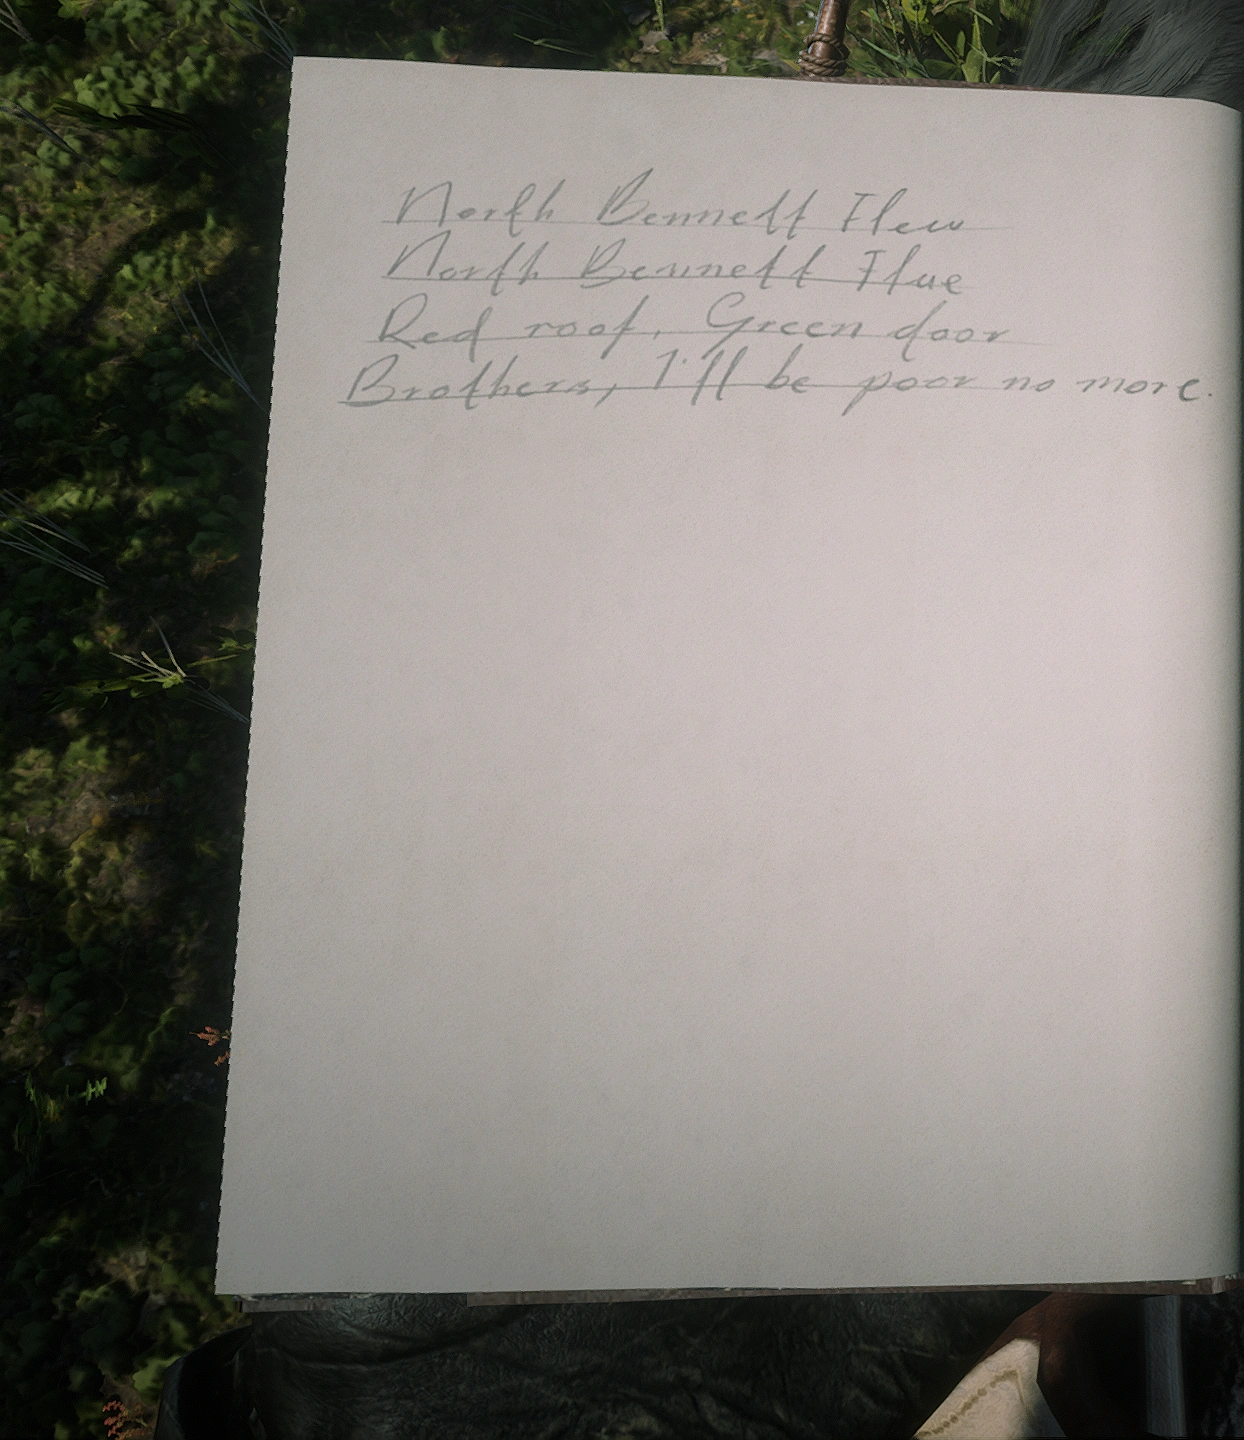 North Bennett Flew
North Bennett Flue
Red roof, Green door
Brothers, I'll be poor no more.